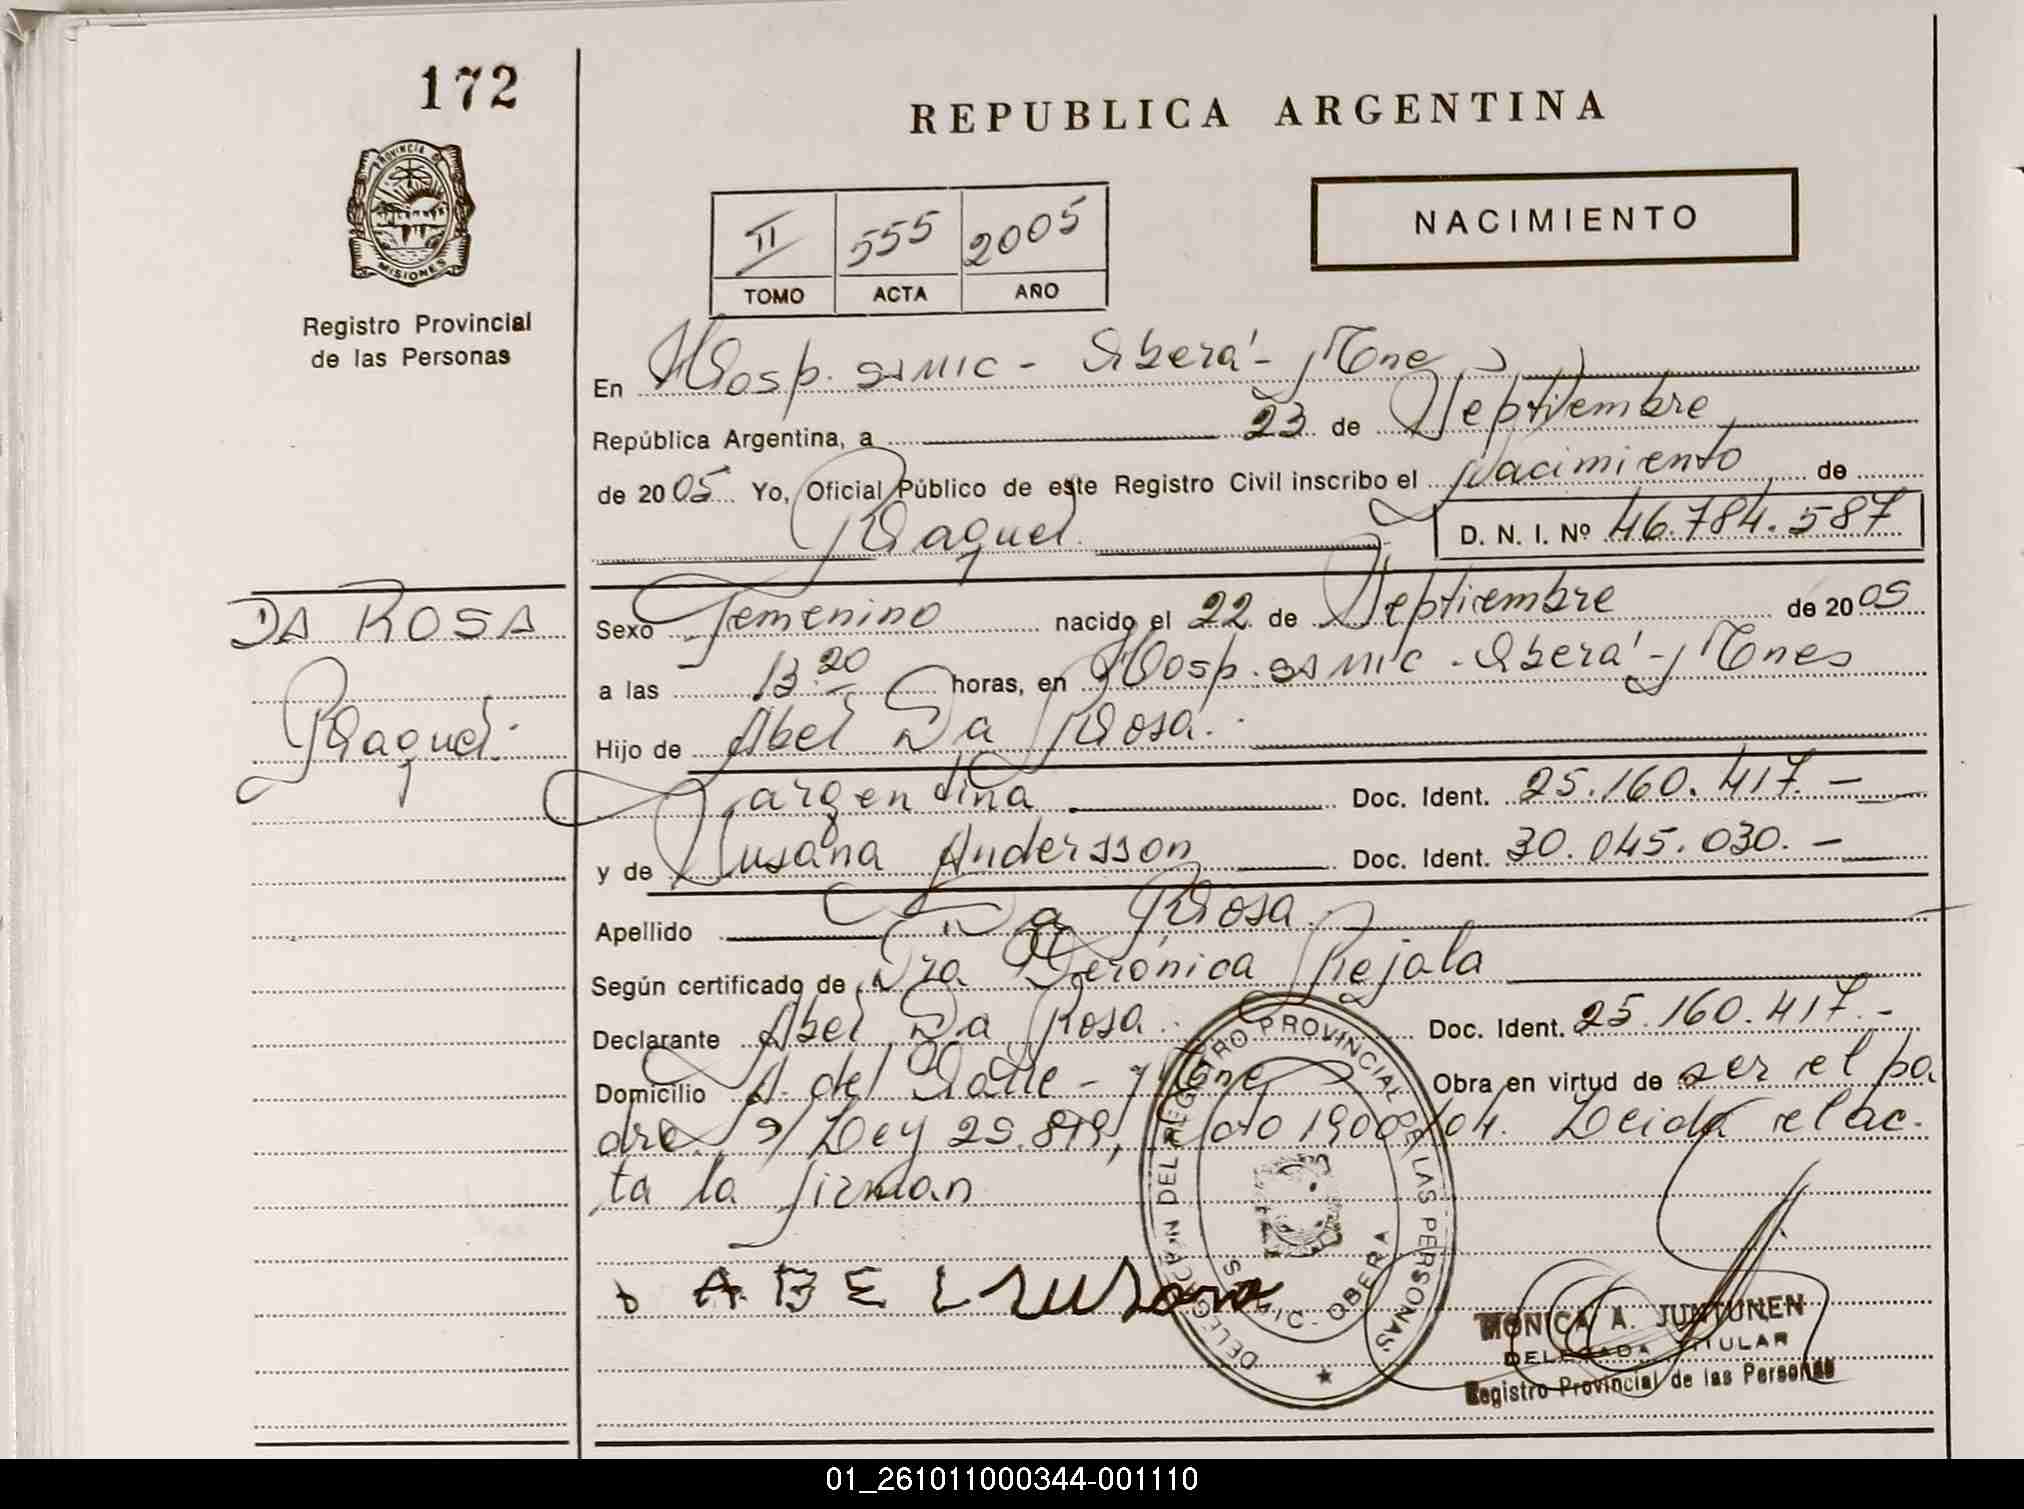 172
REPUBLICA ARGENTINA
PROVINCIA DE
MISIONES
Registro Provincial
de las Personas
II 555 2005
TOMO ACTA AÑO
NACIMIENTO
En Hosp. SAMIC - Oberá - Mnes
República Argentina, a 23 de Septiembre
de 2005 Yo, Oficial Público de este Registro Civil inscribo el Nacimiento de
Raquel D. N. I. Nº 46.784.587
DA ROSA
Raquel.
Sexo Femenino nacido el 22 de Septiembre de 2005
a las 13.20 horas, en Hosp. SAMIC - Oberá - Mnes
Hijo de Abel Da Rosa.
argentina Doc. Ident. 25.160.417.-
y de Susana Andersson Doc. Ident. 30.045.030.-
Apellido Da Rosa.
Según certificado de Dra Verónica Rejala
Declarante Abel Da Rosa. Doc. Ident. 25.160.417.-
Domicilio A. del Valle - Mnes Obra en virtud de ser el pa
dre. S/ Ley 25.819, Dcto 1900/04. Leida el ac.
ta la firman
ABEL
DELEGACION DEL REGISTRO PROVINCIAL DE LAS PERSONAS
SAMIC - OBERA
MONICA A. JUNTUNEN
DELEGADA TITULAR
Registro Provincial de las Personas
01_261011000344-001110